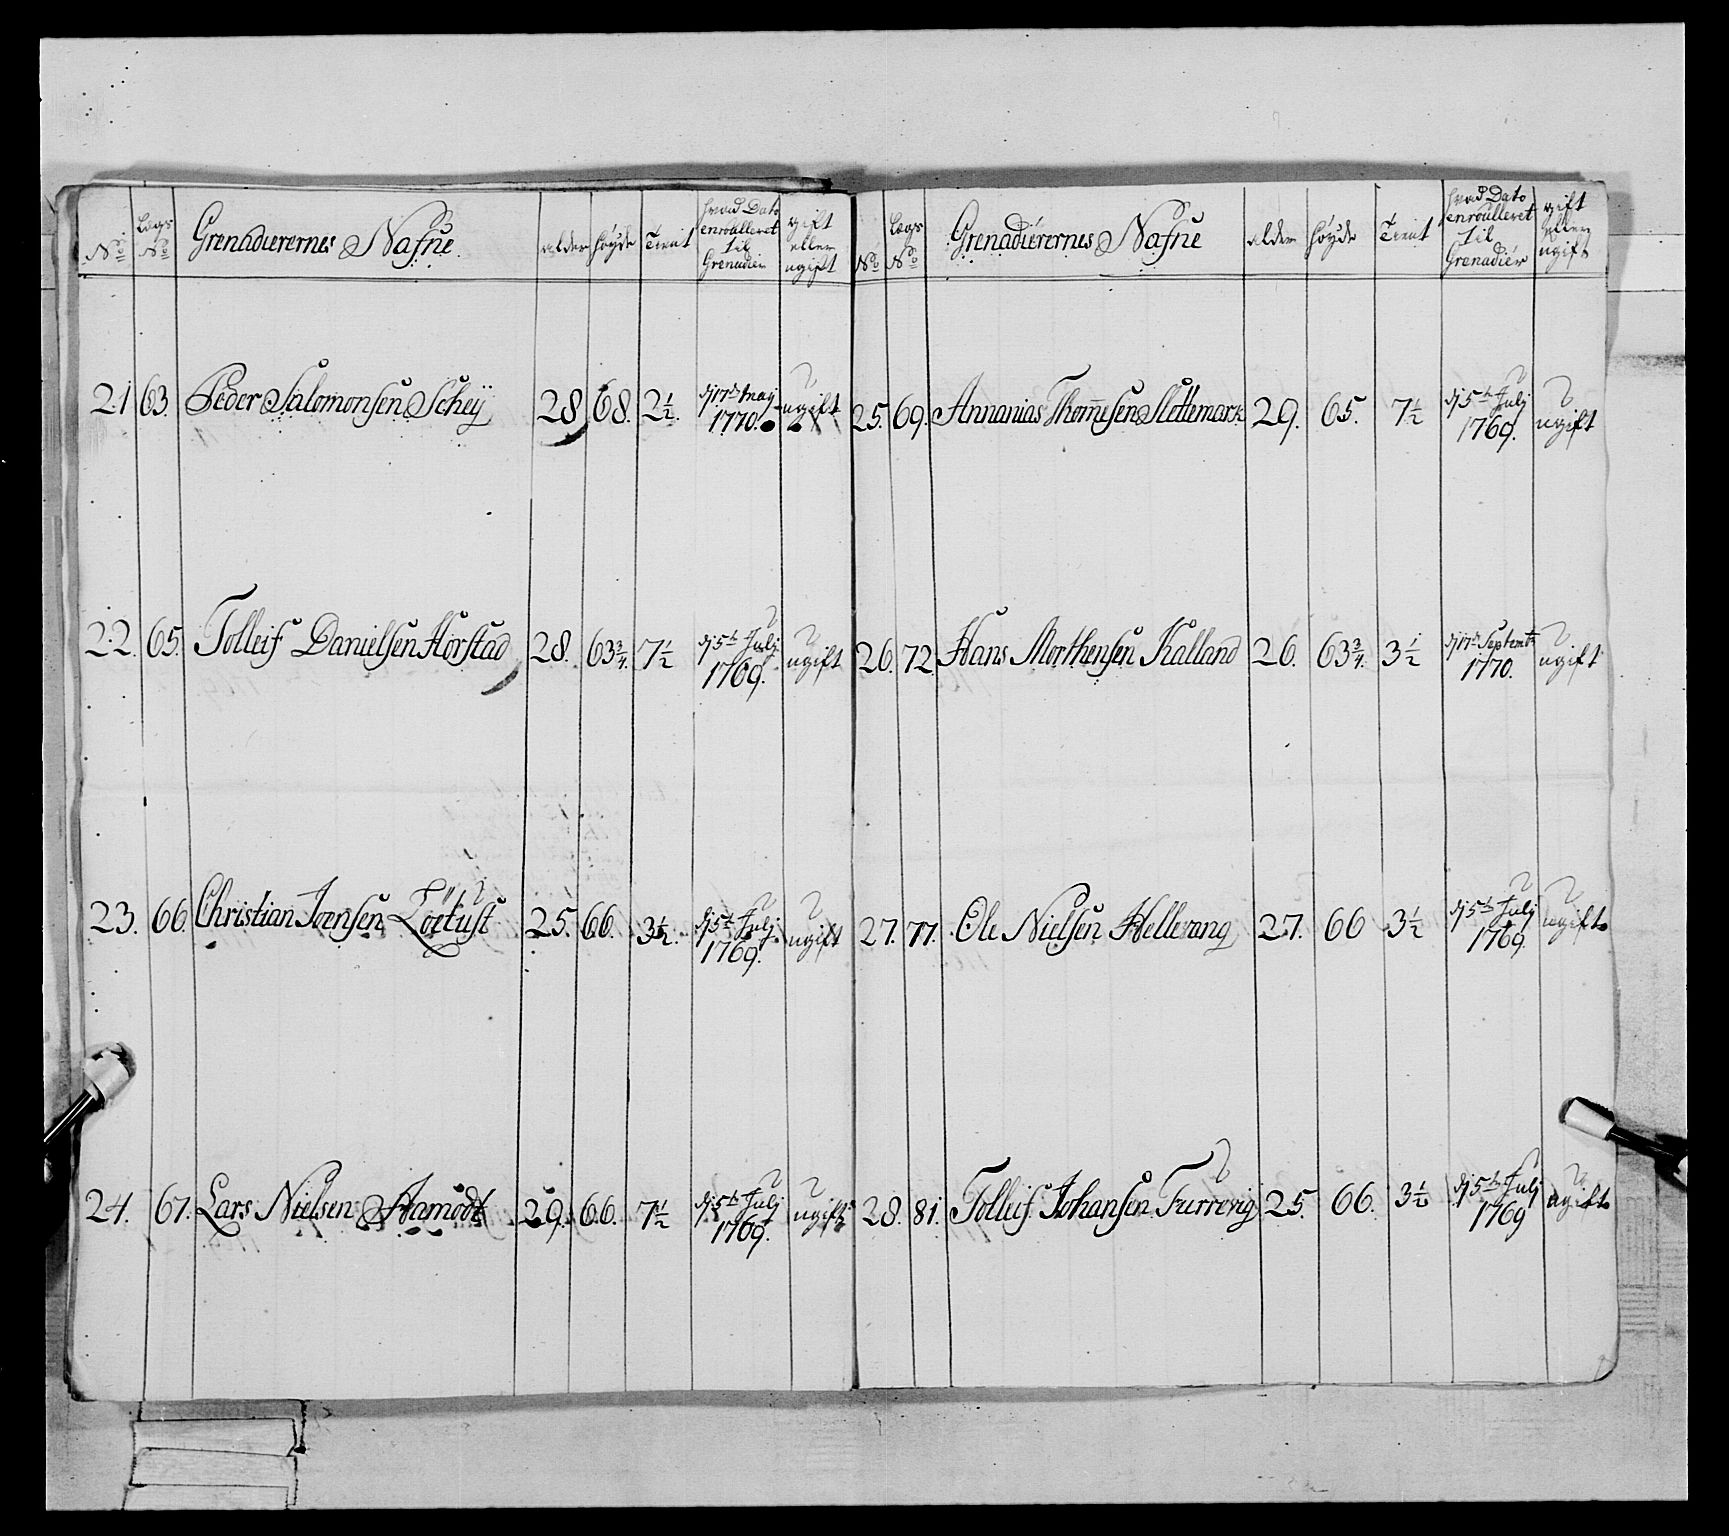 No Lægs No Grenadierernes Nafne alder høyde Tient hvad Dato enroulleret til Grenadier gift eller ugift
21 63. Peder Salomonsen Scheÿ 28 68. 2½ dj 17de Maÿ 1770. ugift
22. 65. Tolleif Danielsen Hørstad 28. 63¾. 7½ dj 5te Julj 1769. ugift
23. 66. Christian Joensen Löetust 25. 66. 3½. dj 5te Julj 1769. ugift
24. 67. Lars Nielsen Aamodt 29. 66. 7½ dj 5te Julj 1769. ugift
No Lægs No Grenadierernes Nafne alder høyde Tient hvad Dato enroulleret til Grenadier gift eller ugift
25. 69. Annanias Thom̄esen Slettemark 29. 65. 7½ dj 5te Julj 1769. ugift
26. 72 Hans Morthensen Kalland 26. 63¾. 3½ dj 17de Septembr 1770. ugift
27. 77. Ole Nielsen Hellevang 27. 66 3½ dj 5te Julj 1769. ugift
28. 81. Tolleif Johansen Furrevig 25. 66. 3½ dj 5te Julj 1769 ugift